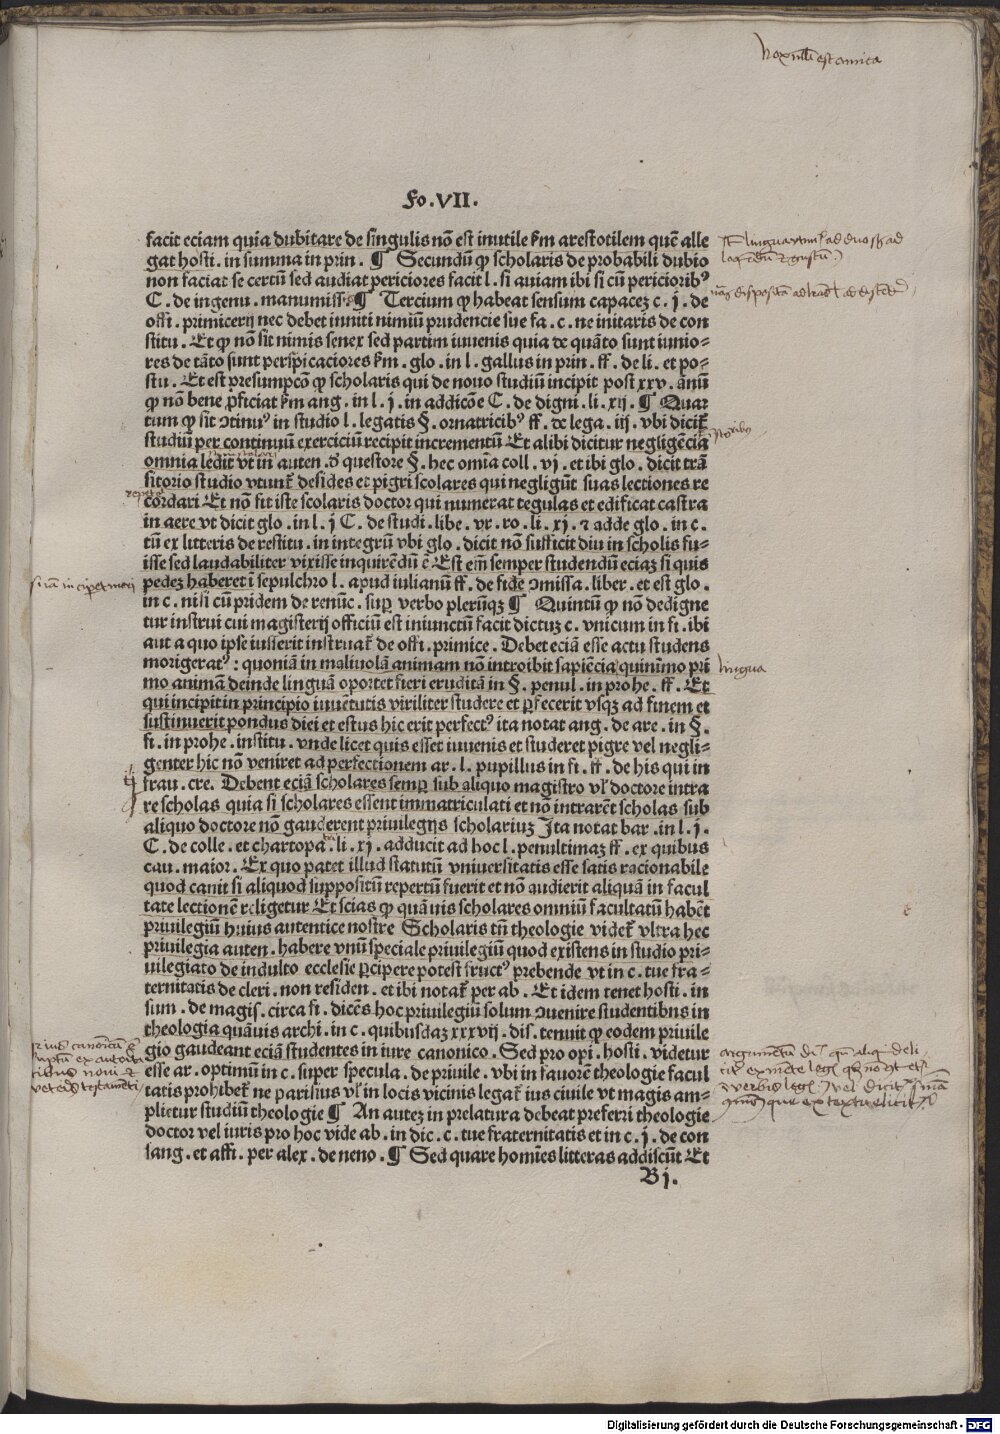 Fo.VII.
facit eciam quia dubitare de singulis nõ est inutile ẜm arestotilem quẽ alle
gat hosti. in summa in prin. ¶ Secundũ ꝙ scholaris de probabili dubio
non faciat se certũ sed audiat periciores facit l. si quiam ibi si cũ periciorib⁹
C. de ingenu. manumiss. ¶ Tercium ꝙ habeat sensum capacez c. j. de
offi. primicerij nec debet inniti nimiũ prudencie sue fa. c. ne initaris de con
stitu. Et ꝙ nõ sit nimis senex sed partim iuuenis quia de quãto sunt iunio-
res de tãto sunt perspicaciores ẜm. glo. in l. gallus in prin. ff. de li. et po-
stu. Et est presumpcõ ꝙ scholaris qui de nouo studiũ incipit post xxv. ãnũ
ꝙ nõ bene ꝓficiat ẜm ang. in l. j. in addicõe C. de digni. li. xij. ¶ Quar
tum ꝙ sit ↄtinu⁹ in studio l. legatis §. ornatricib⁹ ff. de lega. iij. vbi dicit̃
studiũ per continuũ exerciciũ recipit incrementũ Et alibi dicitur negligẽcia
omnia ledit̃ vt in auten. d̃ questore §. hec omĩa coll. vj. et ibi glo. dicit trã
sitorio studio vtunt̃ desides et pigri scolares qui negligũt suas lectiones re
cordari Et nõ fit iste scolaris doctor qui numerat tegulas et edificat castra
in aere vt dicit glo. in l. j C. de studi. libe. vr. ro. li. xj. ⁊ adde glo. in c.
tũ ex litteris de restitu. in integrũ vbi glo. dicit nõ sufficit diu in scholis fu-
isse sed laudabiliter vixisse inquirẽdũ ẽ Est em̃ semper studendũ eciaz si quis
pedez haberet ĩ sepulchro l. apud iulianũ ff. de fide ↄmissa. liber. et est glo.
in c. nisi cũ pridem de renũc. suꝑ verbo plerũqz ¶ Quintũ ꝙ nõ dedigne
tur instrui cui magisterij officiũ est iniunctũ facit dictuz c. vnicum in fi. ibi
aut a quo ipse iusserit instruat̃ de offi. primice. Debet eciã esse actu studens
morigerat⁹: quoniã in maliuolã animam nõ introibit sapiẽcia quinimo pri
mo animã deinde linguã oportet fieri eruditã in §. penul. in prohe. ff. Et
qui incipit in principio iuuẽtutis viriliter studere et ꝑfecerit vsqz ad finem et
sustinuerit pondus diei et estus hic erit perfect⁹ ita notat ang. de are. in §.
fi. in prohe. institu. vnde licet quis esset iuuenis et studeret pigre vel negli-
genter hic nõ veniret ad perfectionem ar. l. pupillus in fi. ff. de his qui in
frau. cre. Debent eciã scholares semꝑ sub aliquo magistro vl̃ doctore intra
re scholas quia si scholares essent immatriculati et nõ intrarẽt scholas sub
aliquo doctore nõ gauderent priuilegijs scholariuz Ita notat bar. in l. j.
C. de colle. et chartopa. li. xj. adducit ad hoc l. penultimaz ff. ex quibus
cau. maior. Ex quo patet illud statutũ vniuersitatis esse satis racionabile
quod canit si aliquod suppositũ repertũ fuerit et nõ audierit aliquã in facul
tate lectionẽ religetur Et scias ꝙ quãuis scholares omniũ facultatũ habẽt
priuilegiũ huius autentice nostre Scholaris tñ theologie videt̃ vltra hec
priuilegia auten. habere vnũ speciale priuilegiũ quod existens in studio pri-
uilegiato de indulto ecclesie ꝑcipere potest fruct⁹ prebende vt in c. tue fra-
ternitatis de cleri. non residen. et ibi notat̃ per ab. Et idem tenet hosti. in
sum. de magis. circa fi. dicẽs hoc priuilegiũ solum ↄuenire studentibus in
theologia quãuis archi. in c. quibusdaz xxxvij. dis. tenuit ꝙ eodem priuile
gio gaudeant eciã studentes in iure canonico. Sed pro opi. hosti. videtur
esse ar. optimũ in c. super specula. de priuile. vbi in fauorẽ theologie facul
tatis prohibet̃ ne parisius vl̃ in locis vicinis legat̃ ius ciuile vt magis am-
plietur studiũ theologie ¶ An autez in prelatura debeat preferri theologie
doctor vel iuris pro hoc vide ab. in dic. c. tue fraternitatis et in c. j. de con
sang. et affi. per alex. de neno. ¶ Sed quare homĩes litteras addiscũt Et
Bj.
lingua
Digitalisierung gefördert durch die Deutsche Forschungsgemeinschaft - DFG